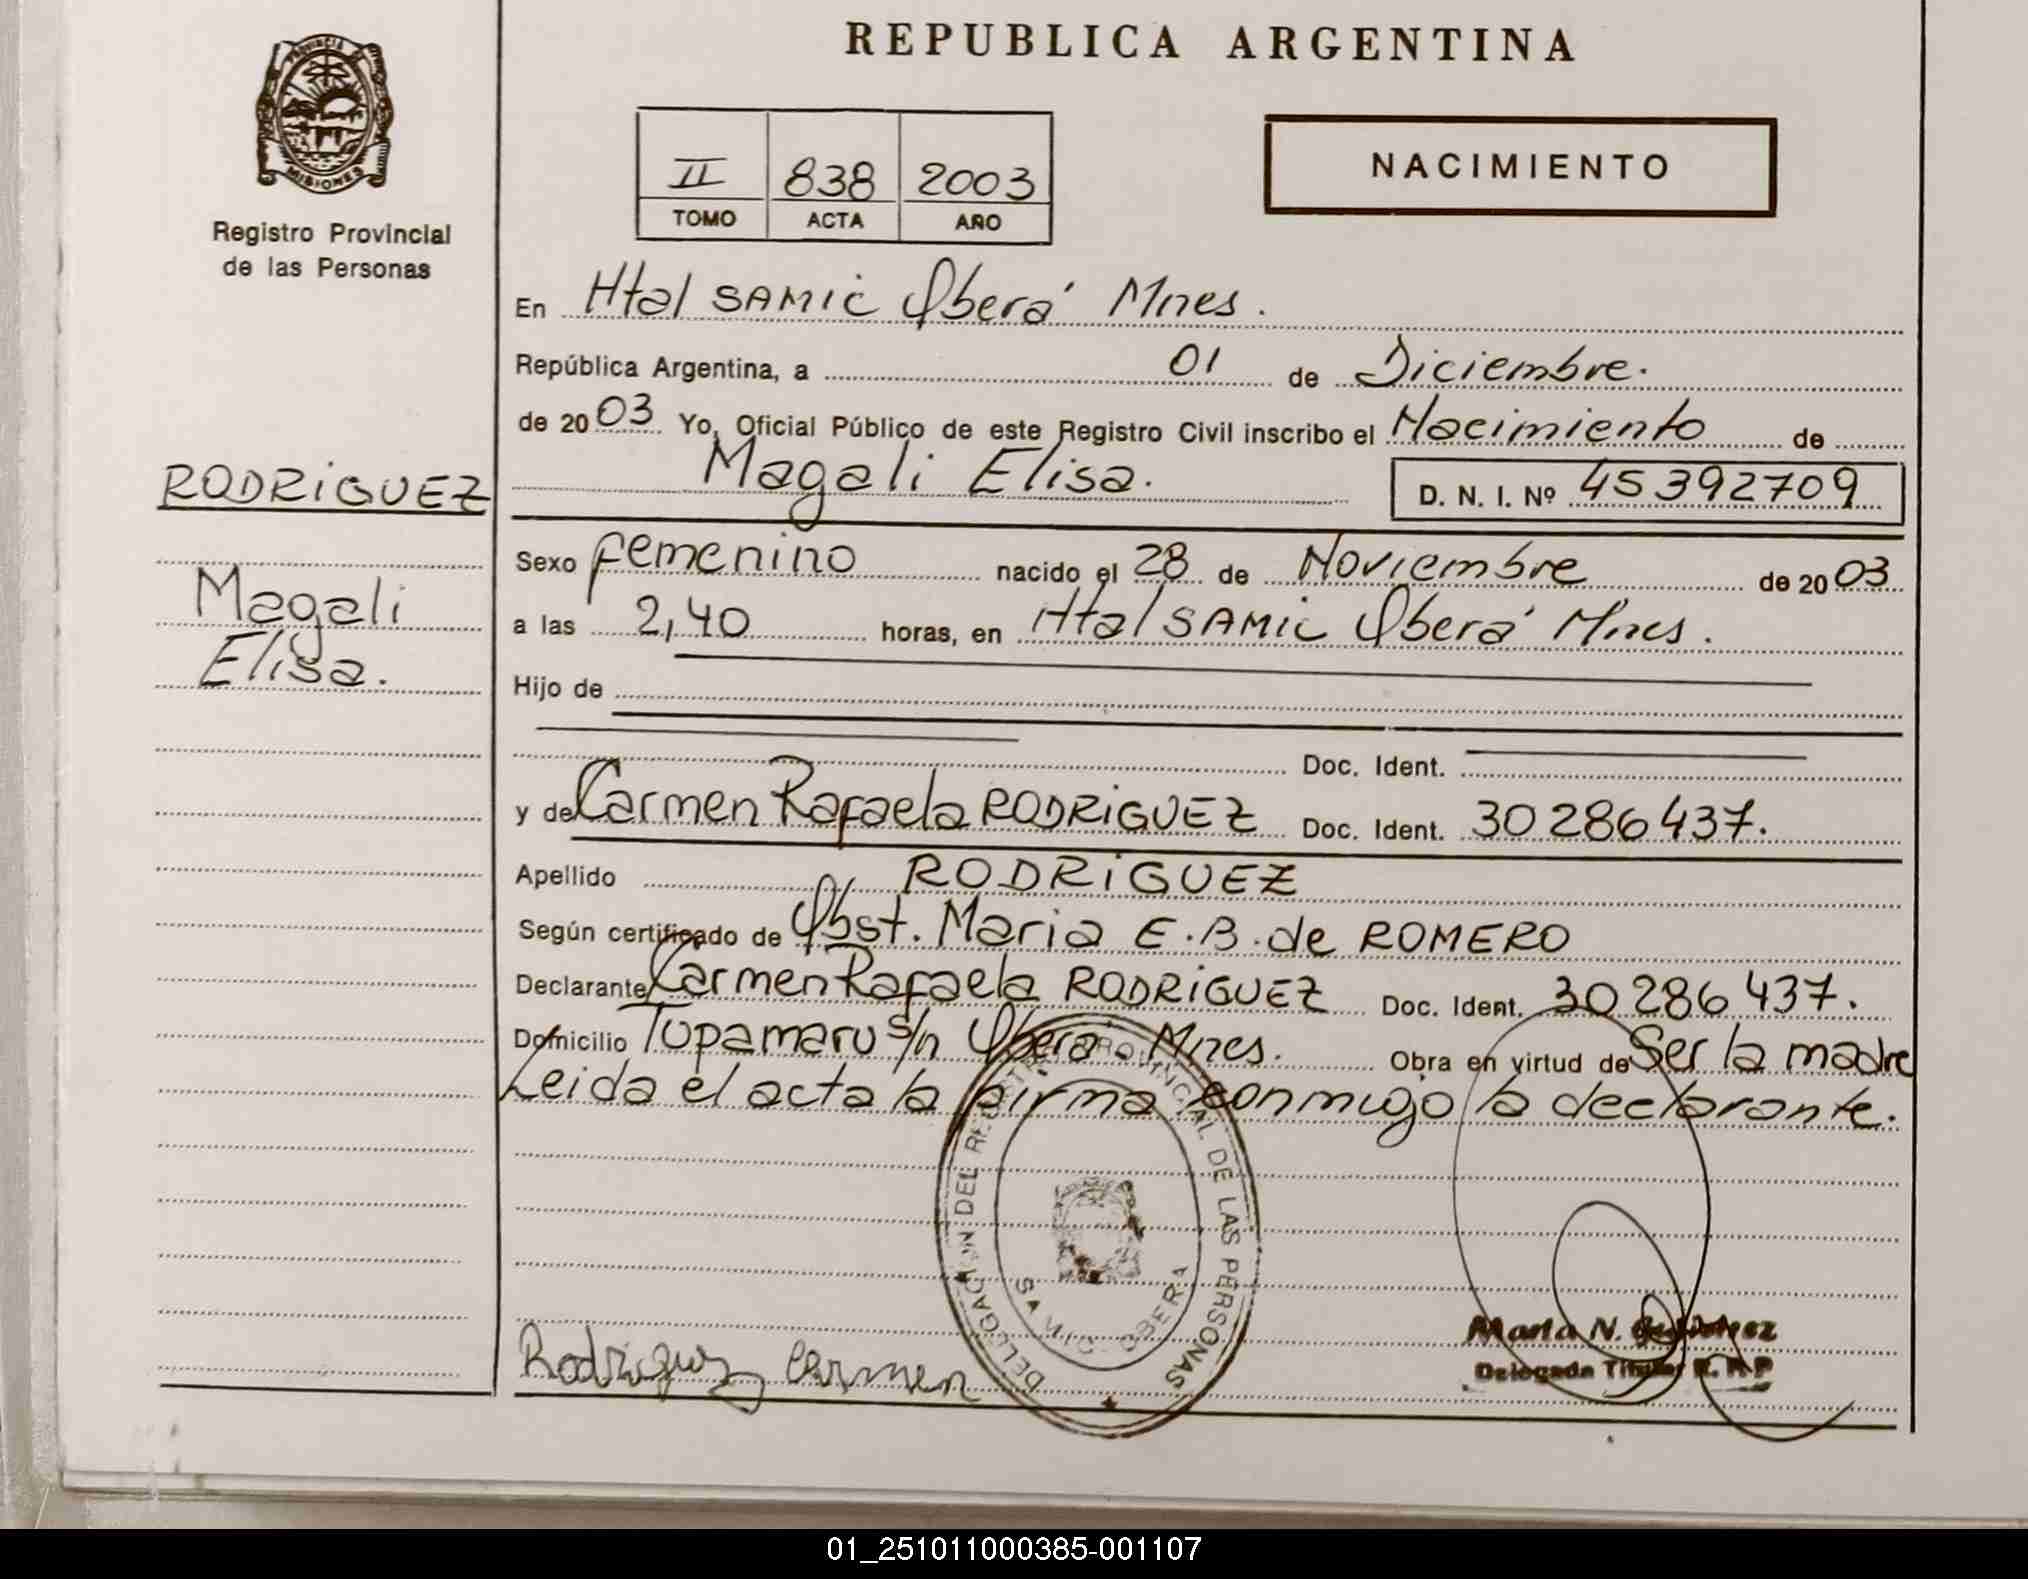 REPUBLICA ARGENTINA
PROVINCIA DE
MISIONES
Registro Provincial
de las Personas
II 838 2003
TOMO ACTA AÑO
NACIMIENTO
En Htal SAMIC Oberá Mnes.
República Argentina, a 01 de Diciembre.
de 2003 Yo, Oficial Público de este Registro Civil inscribo el Nacimiento de
Magali Elisa. D. N. I. Nº 45392709
RODRIGUEZ
Magali
Elisa.
Sexo femenino nacido el 28 de Noviembre de 2003
a las 2,40 horas, en Htal SAMIC Oberá Mnes.
Hijo de
Doc. Ident.
y de Carmen Rafaela RODRIGUEZ Doc. Ident. 30286437.
Apellido RODRIGUEZ
Según certificado de Obst. Maria E.B. de ROMERO
Declarante Carmen Rafaela RODRIGUEZ Doc. Ident. 30286437.
Domicilio Tupamaru s/n Oberá. Mnes. Obra en virtud de Ser la madre
Leida el acta la firma conmigo la declarante.
DELEGACION DEL REGISTRO PROVINCIAL DE LAS PERSONAS
SAMIC - OBERA
Rodriguez Carmen
N.
Delegada Titular R. P. P
01_251011000385-001107